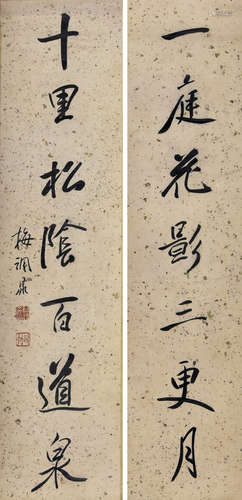 一庭花影三更月
十里松陰百道泉
梅調鼎